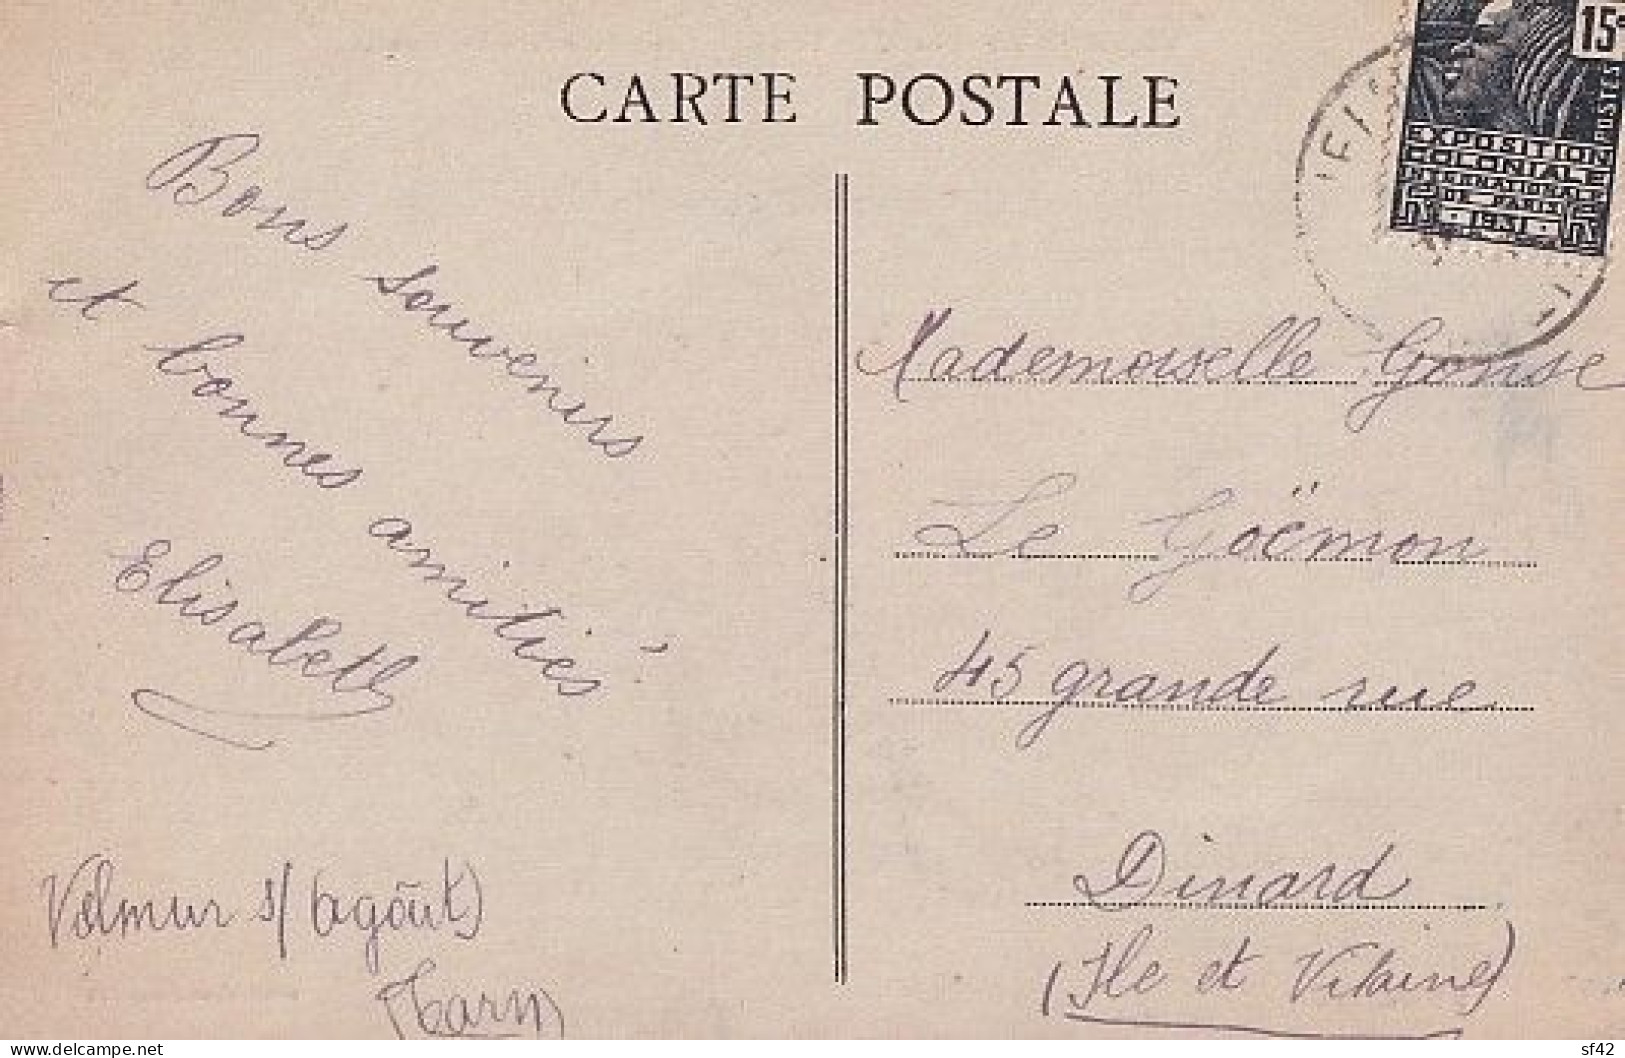 CARTE POSTALE
15c
POSTES
EXPOSITION
COLONIALE
INTERNATIONALE
DE PARIS
1931
Bons souvenirs
et bonnes amitiés
Elisabeth
Mademoiselle Gonse
Le Goëmon
45 grande rue
Dinard
(Ile et Vilaine)
s/ (agoût)
(Tarn)
www.delcampe.net
sf42